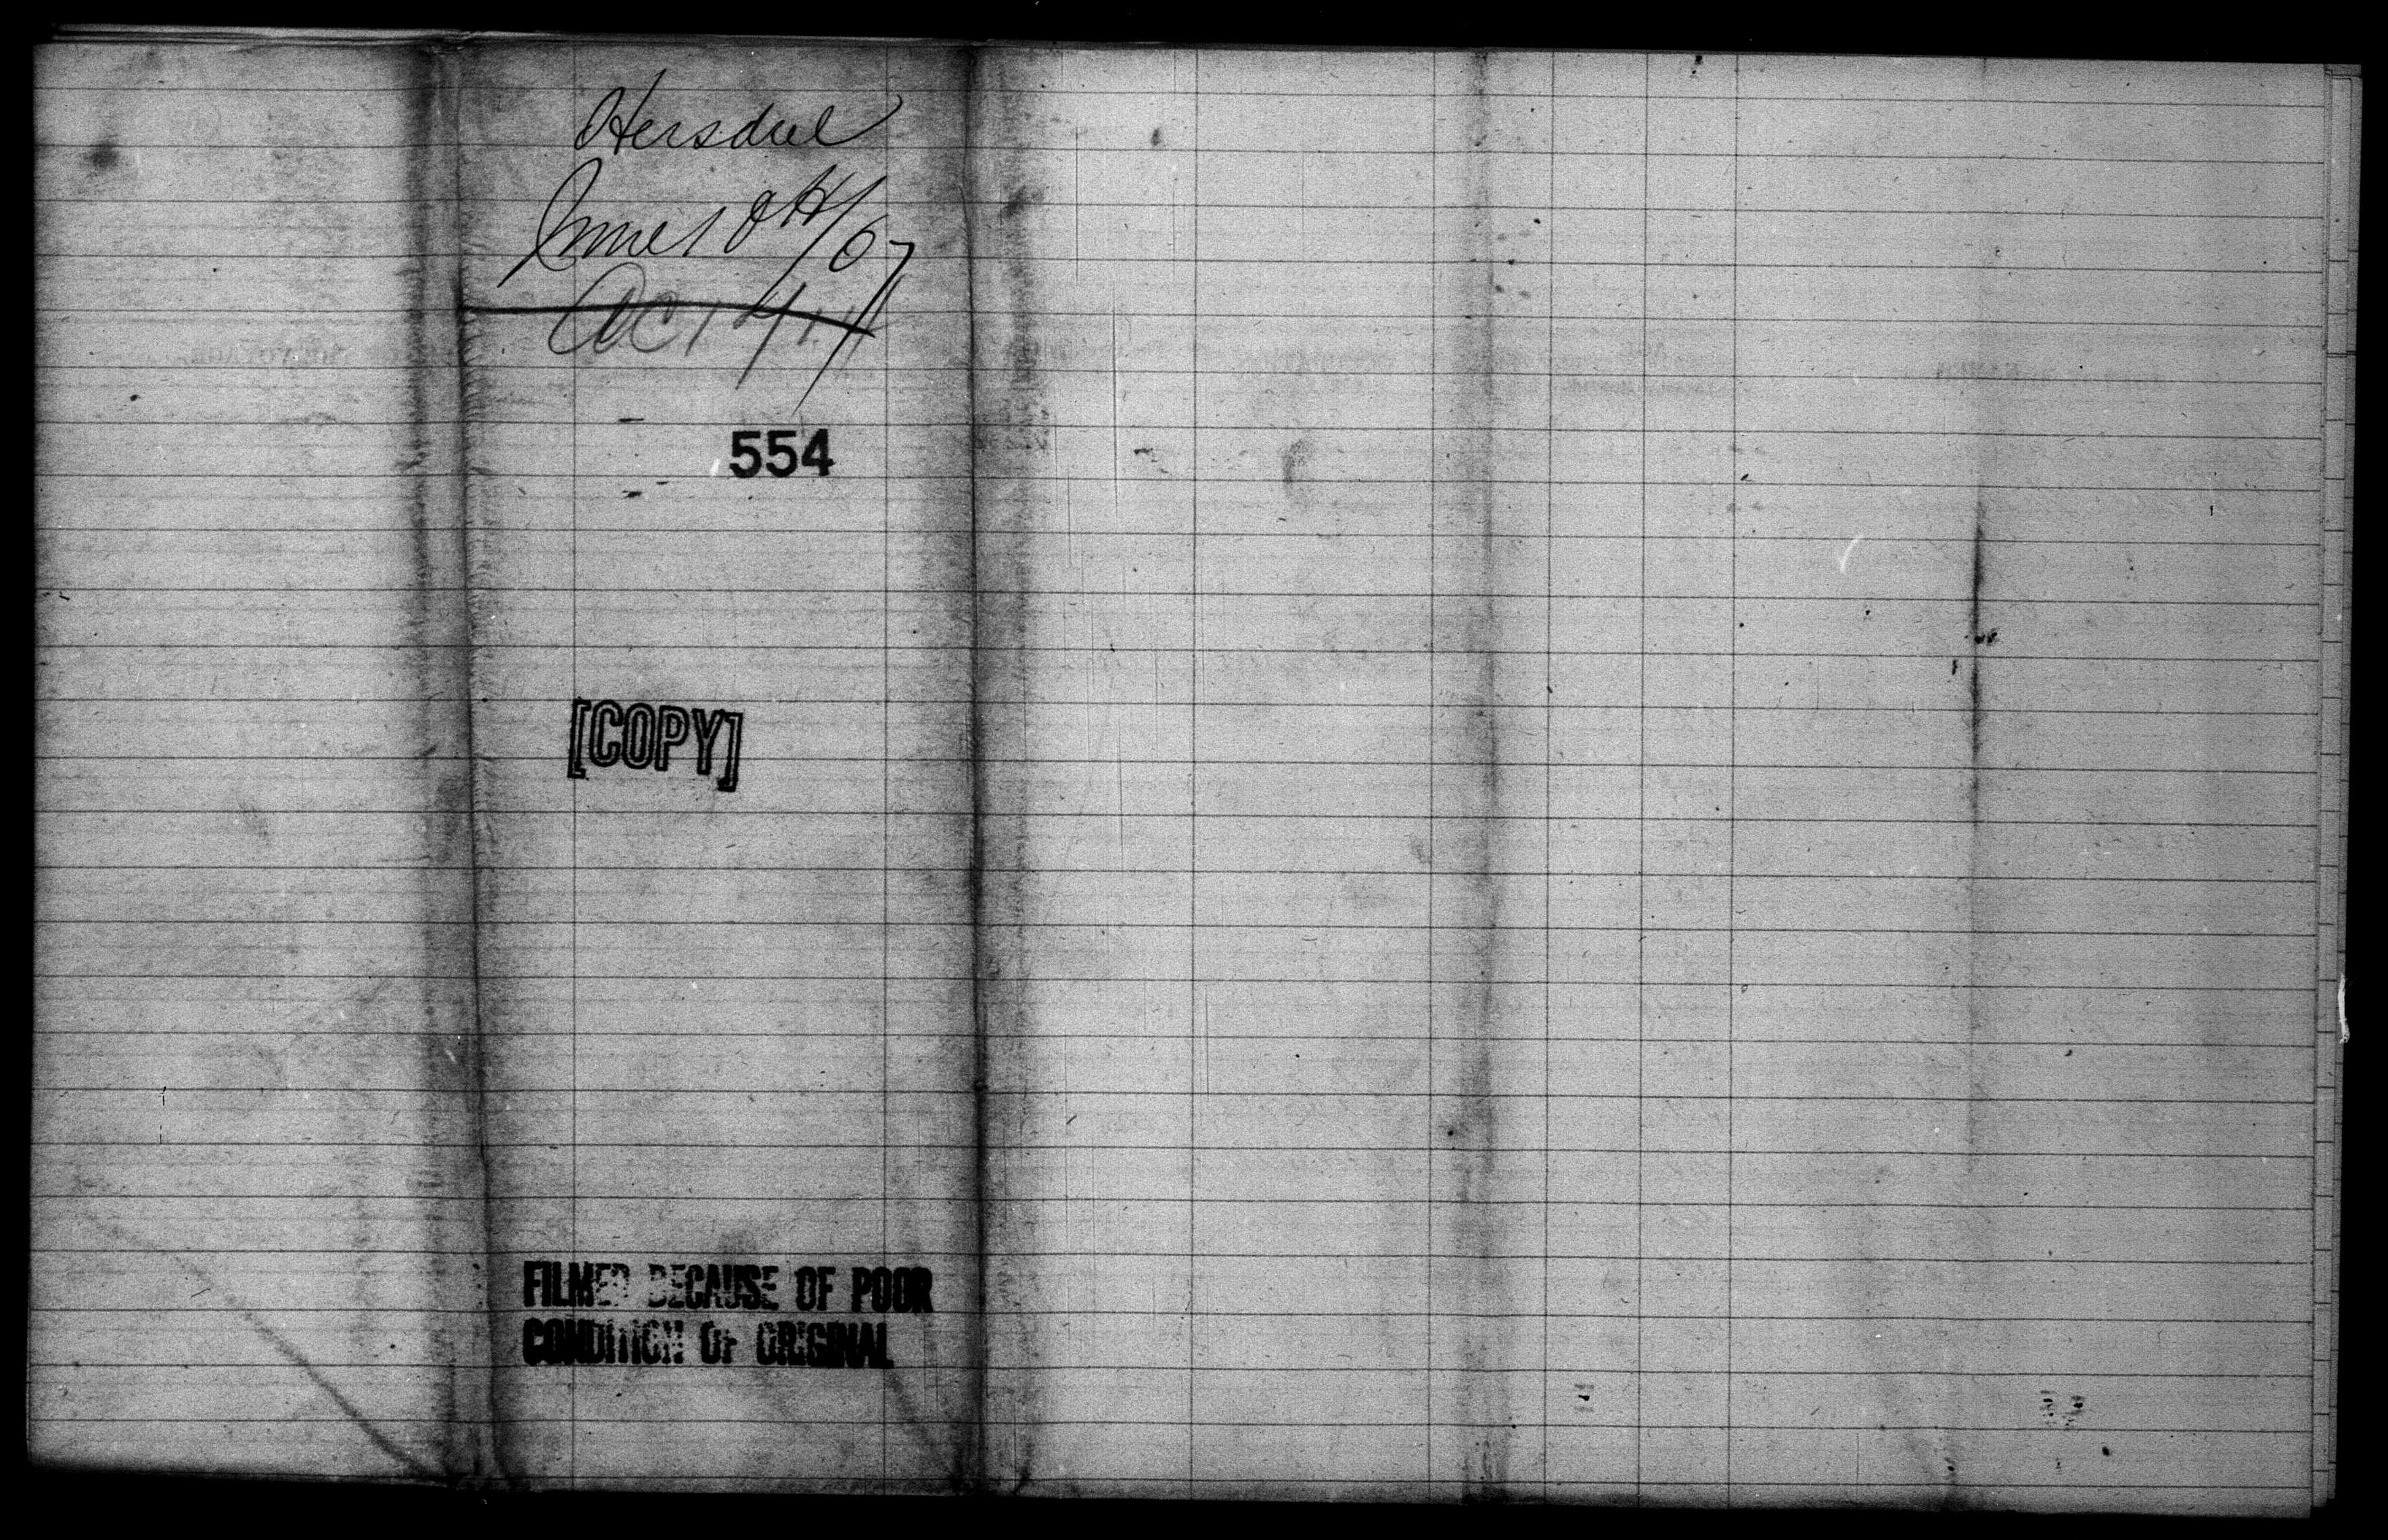 Hersdul
June 10th/07
554
[COPY]
FILMED BECAUSE OF POOR
CONDITION OF ORIGINAL